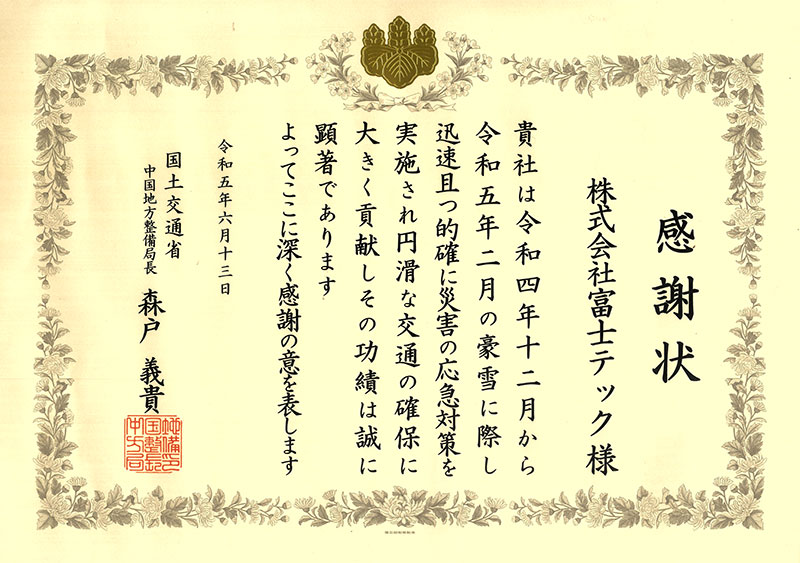 感謝状
株式会社富士テック様
貴社は令和四年十二月から
令和五年二月の豪雪に際し
迅速且つ的確に災害の応急対策を
実施され円滑な交通の確保に
大きく貢献しその功績は誠に
顕著であります
よってここに深く感謝の意を表します
令和五年六月十三日
国土交通省
中国地方整備局長
森戸義貴